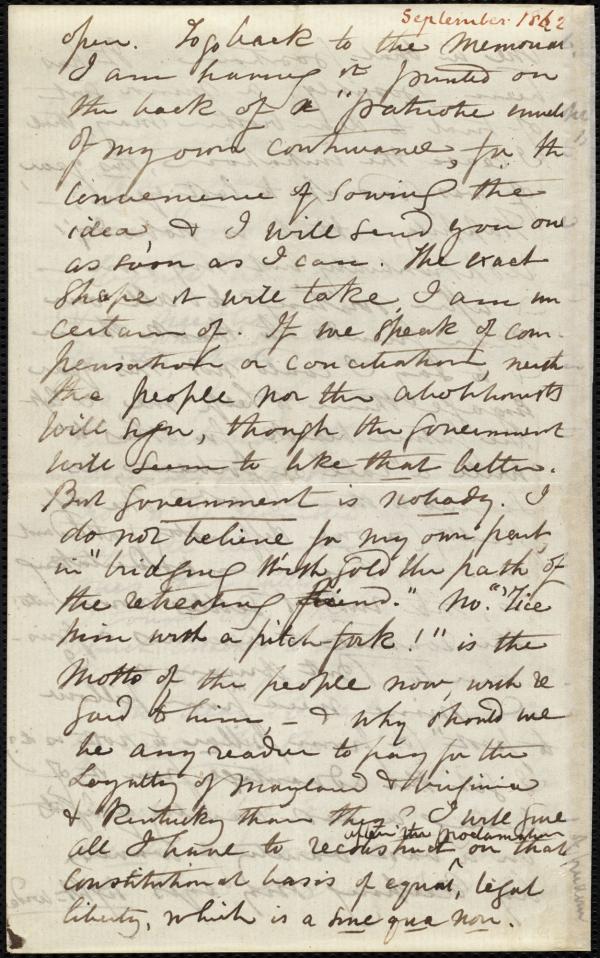 September 1862
open. To go back to the Memorial.
I am having it printed on
the back of a "patriotic
of my own contrivance, for the
convenience of sowing the
idea, & I will send you one
as soon as I can. The exact
shape it will take, I am un
certain of. If we speak of com-
pensation or conciliation, neith
the people nor the abolitionists
will sign, though the Government
will seem to like that better.
But Government is nobody. I
do not believe for my own part,
in "bridging with gold the path of
the retreating fiend." No. "'Tice
him with a pitch-fork!" is the
Motto of the people now, with re
gard to him, - & why should we
be any readier to pay for the
Loyalty of Maryland & Virginia
& Kentucky than they? I will give
all I have to reconstruct on that
after the proclamation
constitutional basis of equal, legal
liberty, which is a sine qua non.